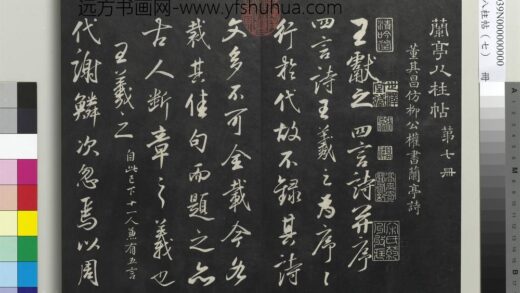 远方书画网-www.yfshuhua.com
蘭亭八柱帖 第七冊
董其昌仿柳公權書蘭亭詩
王獻之四言詩并序
四言詩王羲之為序〻
行於代故不録其詩
文多不可全載今各
裁其佳句而題之亦
古人斷章之義也
王羲之 自此已下十一人兼有五言
代謝鱗次忽焉以周
八柱帖（七） 冊